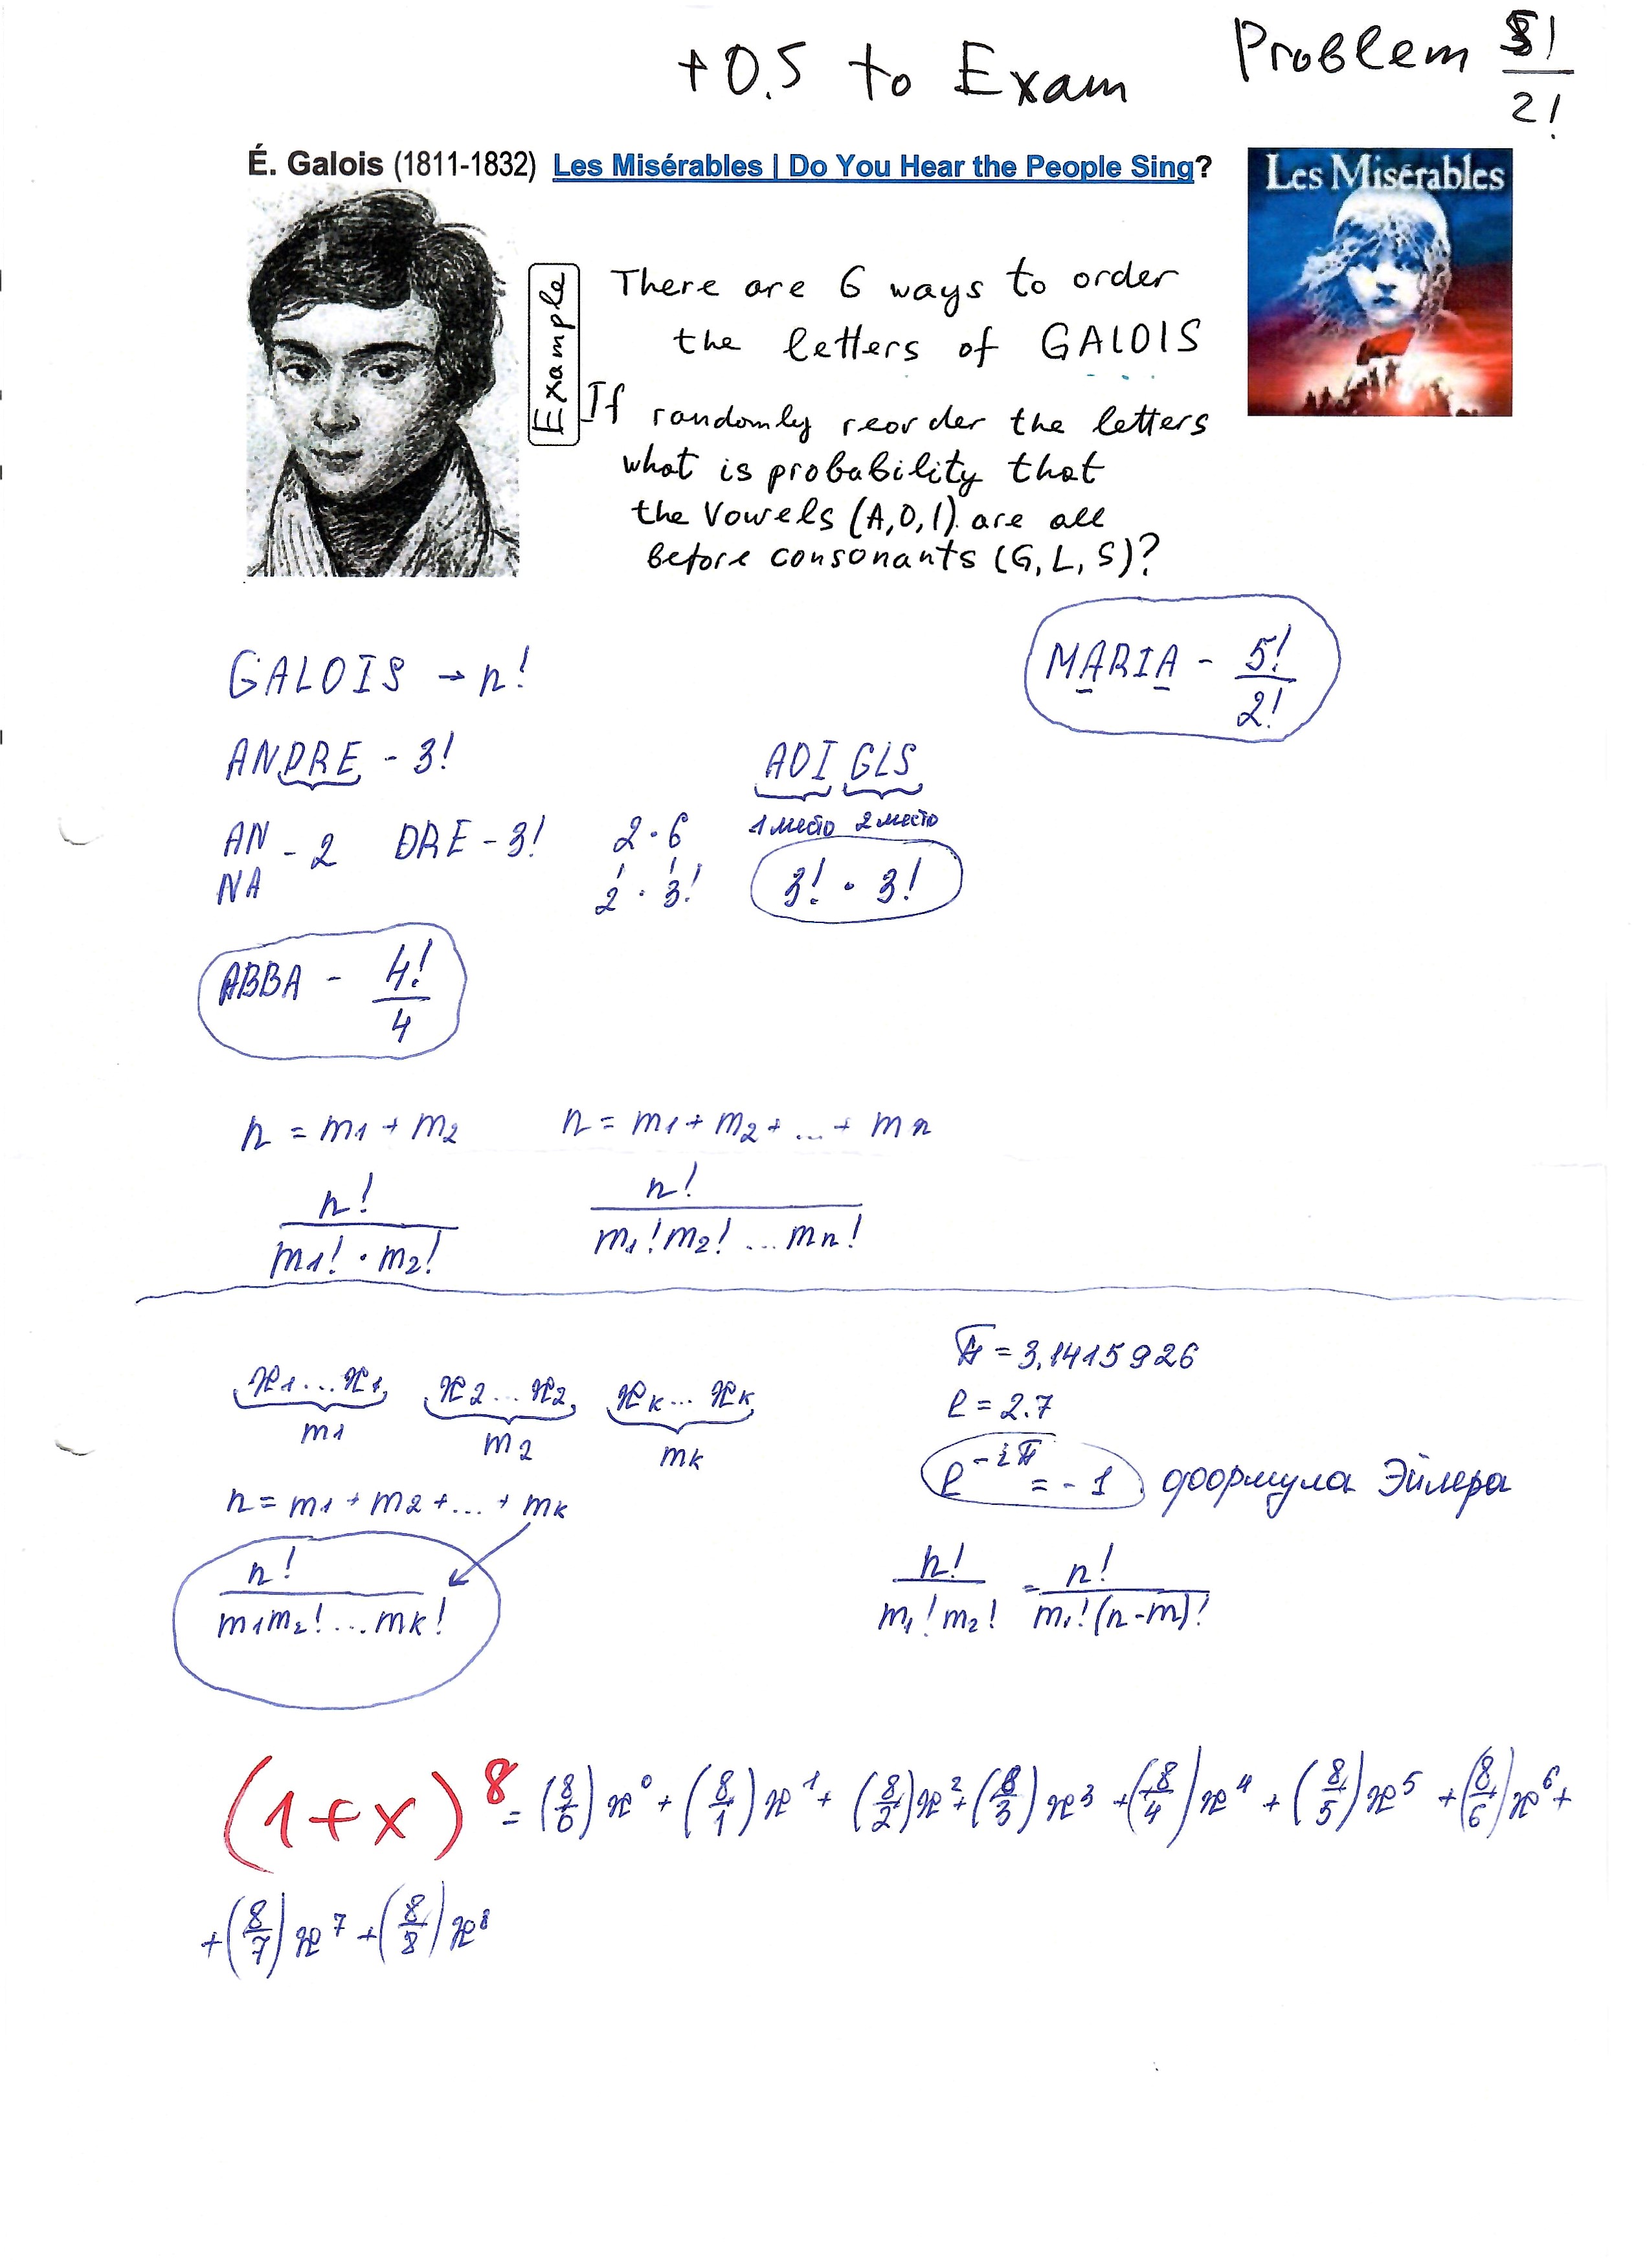 +0.5 to Exam
Problem 3!/2!
É. Galois (1811-1832) Les Misérables | Do You Hear the People Sing?
Les Misérables
Example
There are 6 ways to order
the letters of GALOIS
If randomly reorder the letters
what is probability that
the Vowels (A,O,I) are all
before consonants (G,L,S)?
GALOIS → n!
MARIA - 5!/2!
ANDRE - 3!
AOI GLS
1 место 2 место
AN
NA - 2 DRE - 3! 2·6
2 · 3!
3! · 3!
ABBA - 4!/4
n = m1 + m2
n = m1 + m2 + ... + mn
n!/(m1! · m2!)
n!/(m1! m2! ... mn!)
x1...x1, x2...x2, xk...xk
m1 m2 mk
n = m1 + m2 + ... + mk
n!/(m1m2!...mk!)
π = 3,1415926
e = 2.7
e^-iπ = -1 формула Эйлера
n!/(m1! m2!) = n!/(m1! (n-m)!)
(1+x)^8 = (8/0) x^0 + (8/1) x^1 + (8/2) x^2 + (8/3) x^3 + (8/4) x^4 + (8/5) x^5 + (8/6) x^6 +
+ (8/7) x^7 + (8/8) x^8